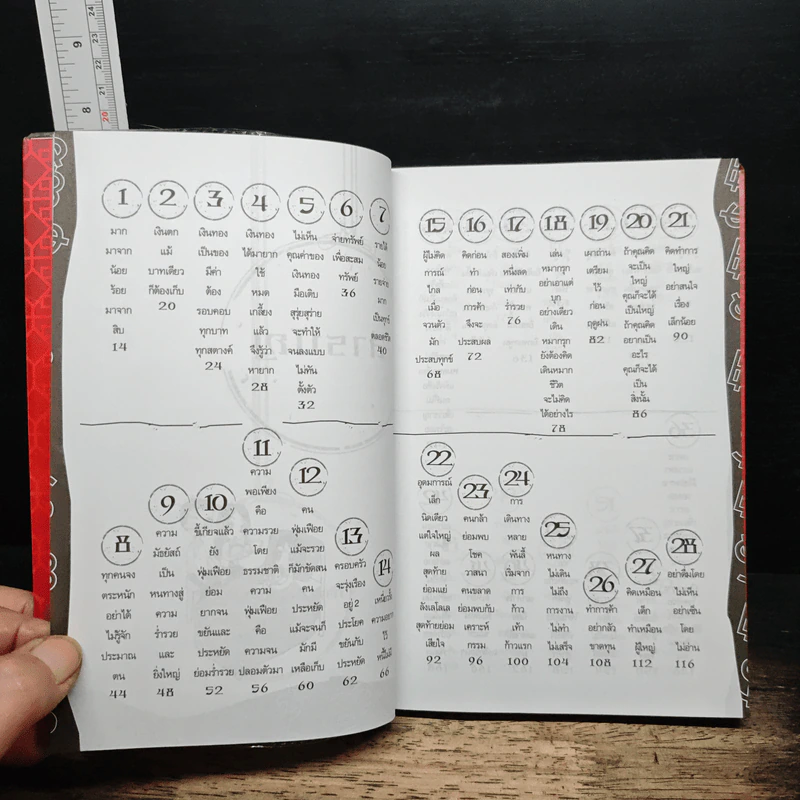 24
23
22
21
20
9
8
1
มาก
มาจาก
น้อย
ร้อย
มาจาก
สิบ
14
2
เงินตก
แม้
บาทเดียว
ก็ต้องเก็บ
20
3
เงินทอง
เป็นของ
มีค่า
ต้อง
รอบคอบ
ทุกบาท
ทุกสตางค์
24
4
เงินทอง
ได้มายาก
ใช้
หมด
เกลี้ยง
แล้ว
จึงรู้ว่า
หายาก
28
5
ไม่เห็น
คุณค่าของ
เงินทอง
มือเติบ
สุรุ่ยสุร่าย
จะทำให้
จนลงแบบ
ไม่ทัน
ตั้งตัว
32
6
จ่ายทรัพย์
เพื่อสะสม
ทรัพย์
36
7
รายได้
น้อย
รายจ่าย
มาก
เป็นทุกข์
ตลอดชีวิต
40
8
ทุกคนจง
ตระหนัก
อย่าได้
ไม่รู้จัก
ประมาณ
ตน
44
9
ความ
มัธยัสถ์
เป็น
หนทางสู่
ความ
ร่ำรวย
และ
ยิ่งใหญ่
48
10
ขี้เกียจแล้ว
ยัง
ฟุ่มเฟือย
ย่อม
ยากจน
ขยันและ
ประหยัด
ย่อมร่ำรวย
52
11
ความ
พอเพียง
คือ
ความรวย
โดย
ธรรมชาติ
ฟุ่มเฟือย
คือ
ความจน
ปลอมตัวมา
56
12
คน
ฟุ่มเฟือย
แม้จะรวย
ก็มักขัดสน
คน
ประหยัด
แม้จะจนก็
มักมี
เหลือเก็บ
60
13
ครอบครัว
จะรุ่งเรือง
อยู่ 2
ประโยค
ขยันกับ
ประหยัด
62
14
ความอยาก
ไว้
66
15
ผู้ไม่คิด
การณ์
ไกล
เมื่อ
จวนตัว
มัก
ประสบทุกข์
68
16
คิดก่อน
ทำ
ก่อน
การค้า
จึงจะ
ประสบผล
72
17
สองเพิ่ม
หนึ่งลด
เท่ากับ
ร่ำรวย
76
18
เล่น
หมากรุก
อย่าเอาแต่
บุก
อย่างเดียว
เดิน
หมากรุก
ยังต้องคิด
เดินหมาก
ชีวิต
จะไม่คิด
ได้อย่างไร
78
19
เผาถ่าน
เตรียม
ไว้
ก่อน
ฤดูฝน
82
20
ถ้าคุณคิด
จะเป็น
ใหญ่
คุณก็จะได้
เป็นใหญ่
ถ้าคุณคิด
อยากเป็น
อะไร
คุณก็จะได้
เป็น
สิ่งนั้น
86
21
คิดทำการ
ใหญ่
อย่าสนใจ
เรื่อง
เล็กน้อย
90
22
อุดมการณ์
เล็ก
นิดเดียว
แต่ใจใหญ่
ผล
สุดท้าย
ย่อมแย่
ลังเลโลเล
สุดท้ายย่อม
เสียใจ
92
23
คนกล้า
ย่อมพบ
โชค
วาสนา
คนขลาด
ย่อมพบกับ
เคราะห์
กรรม
96
24
การ
เดินทาง
หลาย
พันลี้
เริ่มจาก
การ
ก้าว
เท้า
ก้าวแรก
100
25
หนทาง
ไม่เดิน
ไม่ถึง
การงาน
ไม่ทำ
ไม่เสร็จ
104
26
ทำการค้า
อย่ากลัว
ขาดทุน
108
27
คิดเหมือน
เด็ก
ทำเหมือน
ผู้ใหญ่
112
28
อย่าดื่มโดย
ไม่เห็น
อย่าเซ็น
โดย
ไม่อ่าน
116